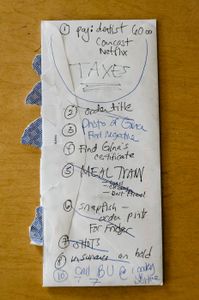 ① pay: dentist 60.00
Comcast
Netflix
TAXES
② order title
③ Drops of
Find Negative
④ Find Edna's
certificate
⑤ MEAL TRAIN
⑥ snapfish -
order pints
For Fridge
⑦ SHOTS
⑧ insurance on hold
⑩ Call BU @